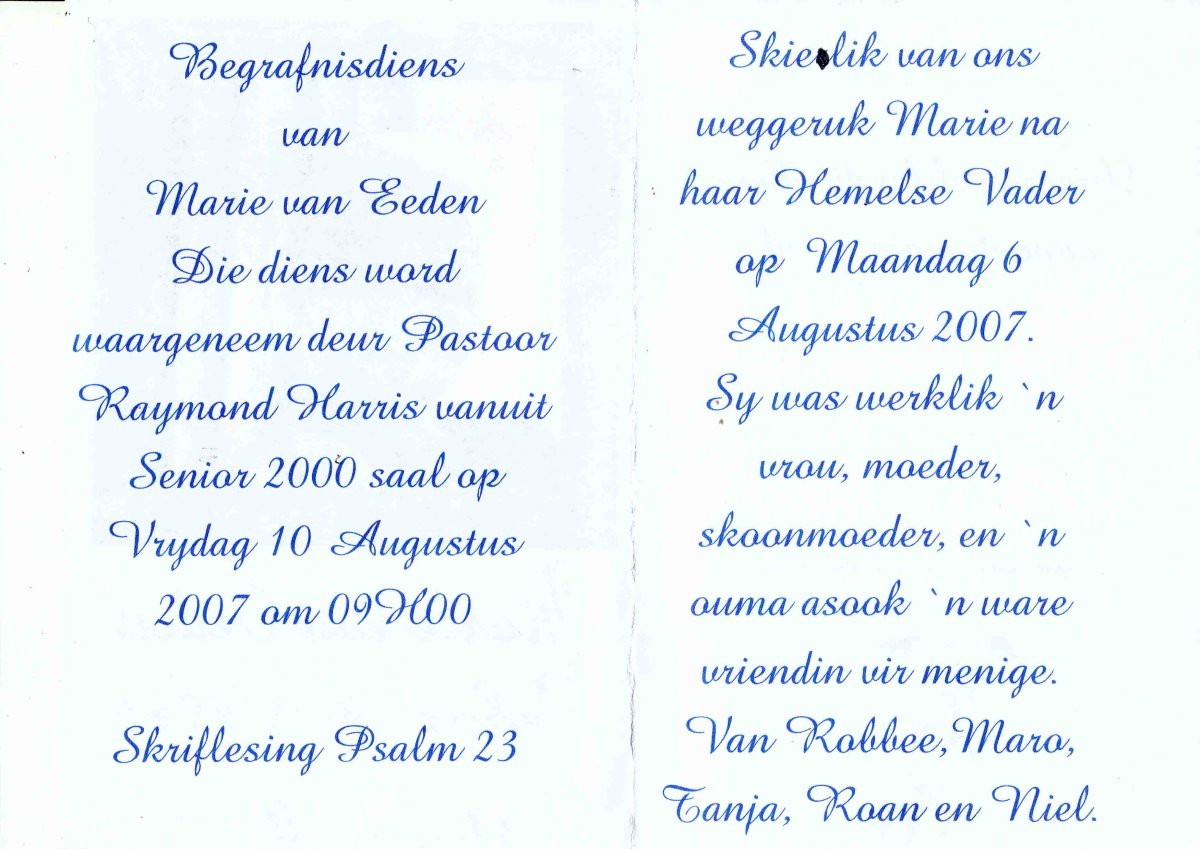 Begrafnisdiens
van
Marie van Eeden
Die diens word
waargeneem deur Pastoor
Raymond Harris vanuit
Senior 2000 saal op
Vrydag 10 Augustus
2007 om 09H00
Skriflesing Psalm 23
Skielik van ons
weggeruk Marie na
haar Hemelse Vader
op Maandag 6
Augustus 2007.
Sy was werklik `n
vrou, moeder,
skoonmoeder, en `n
ouma asook `n ware
vriendin vir menige.
Van Robbee, Maro,
Tanja, Roan en Niel.